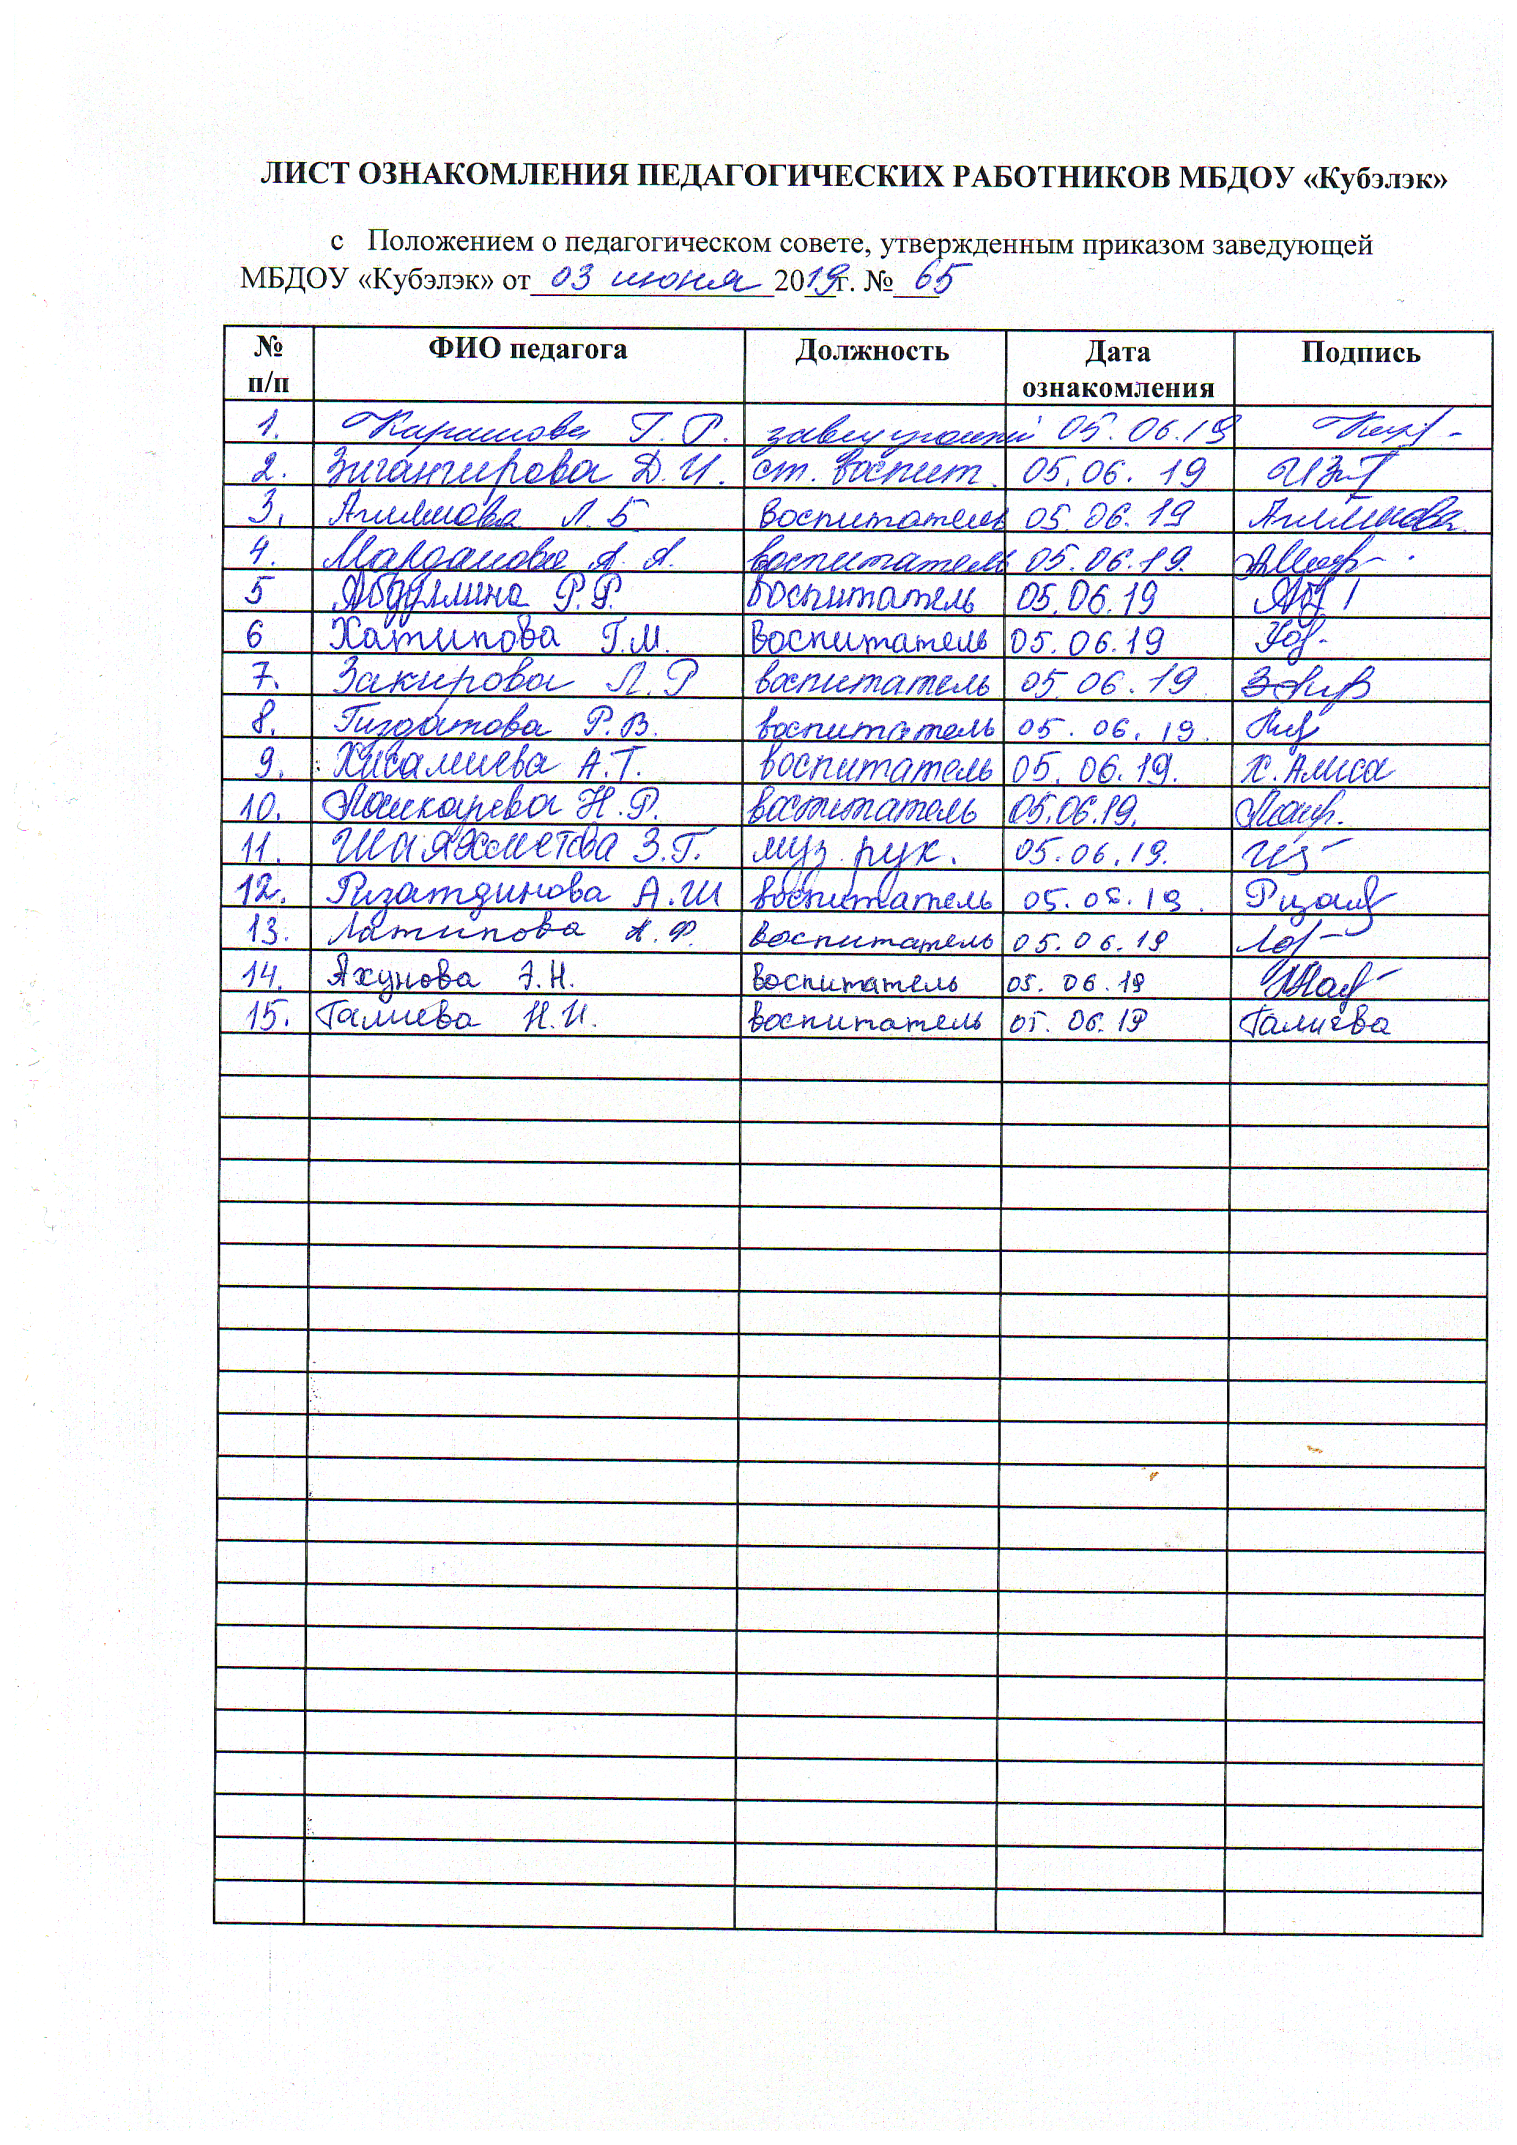 ЛИСТ ОЗНАКОМЛЕНИЯ ПЕДАГОГИЧЕСКИХ РАБОТНИКОВ МБДОУ «Кубэлэк»
с Положением о педагогическом совете, утвержденным приказом заведующей
МБДОУ «Кубэлэк» от 03 июня 2019г. № 65
№ п/п ФИО педагога Должность Дата ознакомления Подпись
1. Каримова Г. Р. заведующий 05.06.19
2. Зигангирова Д. И. ст. воспит. 05.06.19
3. Л. Б воспитатель 05.06.19
4. Марданова А. А. воспитатель 05.06.19.
5 Абдуллина Р.Р. Воспитатель 05.06.19
6 Хатипова Г.М. Воспитатель 05.06.19
7. Закирова Л. Р воспитатель 05.06.19
8. Гиздатова Р.В. воспитатель 05.06.19.
9. Хисамиева А.Т. воспитатель 05.06.19. Х. Алиса
10. Лашкарева Н.Р. воспитатель 05.06.19.
11. Шаяхметова З.Г. муз. рук. 05.06.19.
12. Ризатдинова А.Ш воспитатель 05.06.19.
13. Латипова А.Ф. воспитатель 05.06.19
14. Яхунова Э.Н. воспитатель 05.06.19
15. Галиева Н.И. воспитатель 05.06.19 Галиева